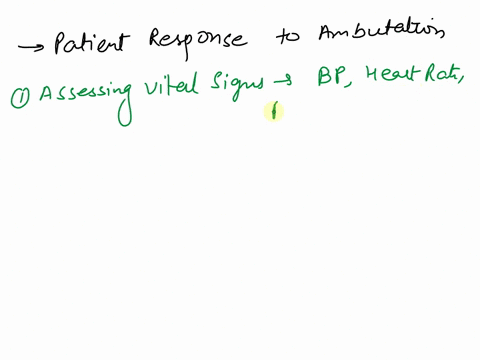 → Patient Response to Ambutation
① Assessing vital Signs → BP, Heart Rate,